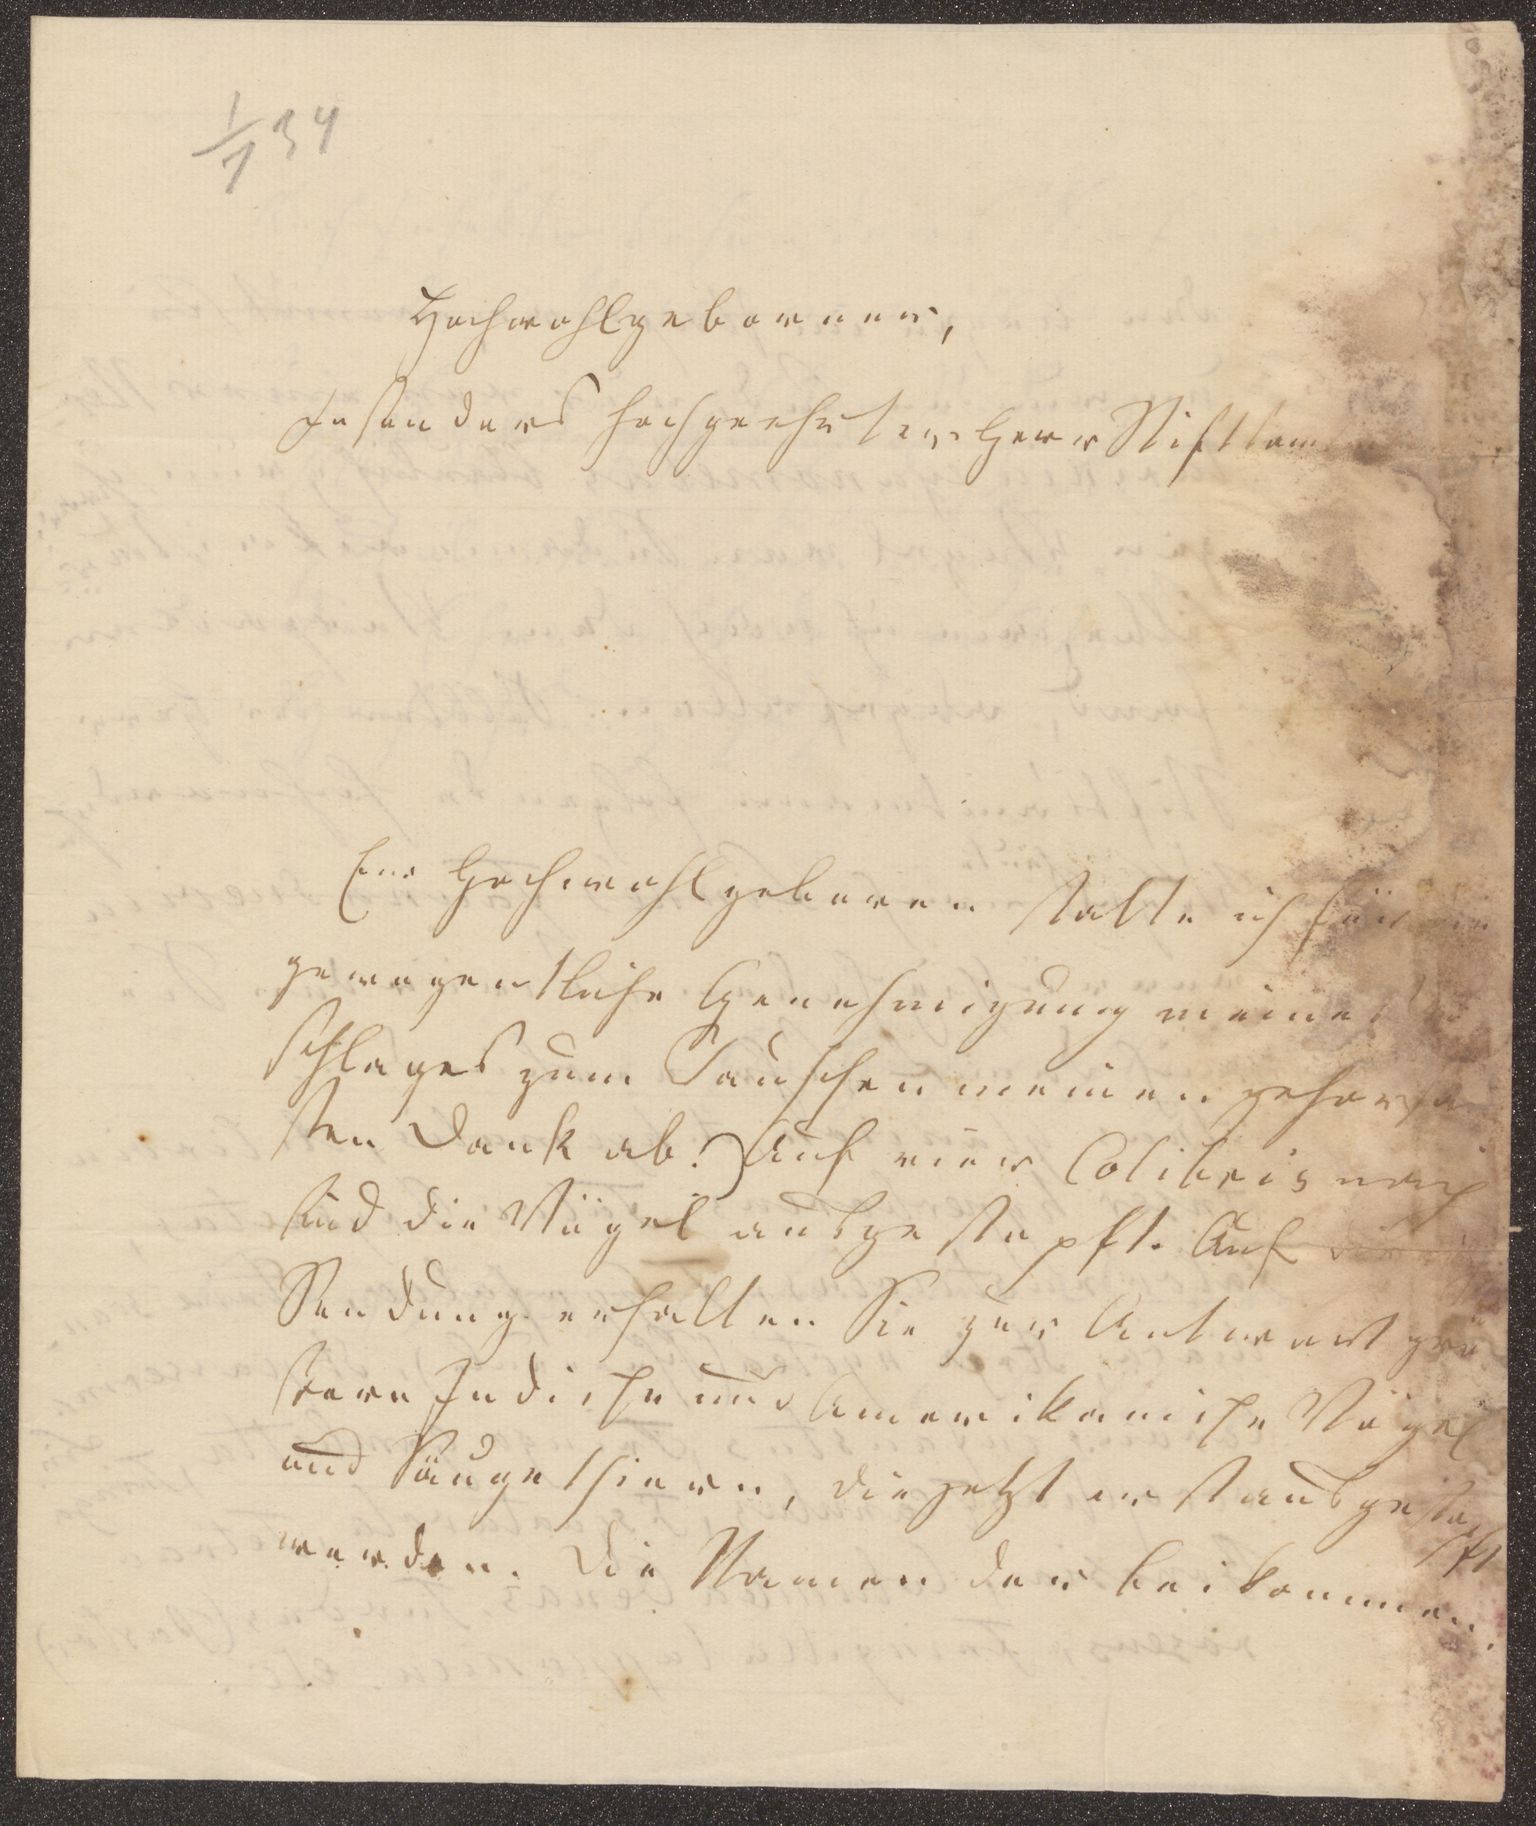 1/7 34
Hochwohlgeborner,
Insonders hochgeehrter Herr Stiftsam
Eur Hochwohlgeboren statte ich für die
gewogentliche Genehmigung meines
schlages zum Tauschen meinen gehorsam
sten Dank ab. Auf vier Colibris nach
sind die Vögel ausgestopft. Auf
Sendung erhalten Sie zur Antwort grö
ßere Indische und Amerikanische Vögel
und Säugethiere, die jetzt erst ausgestopft
werden. Die Namen der beikommen